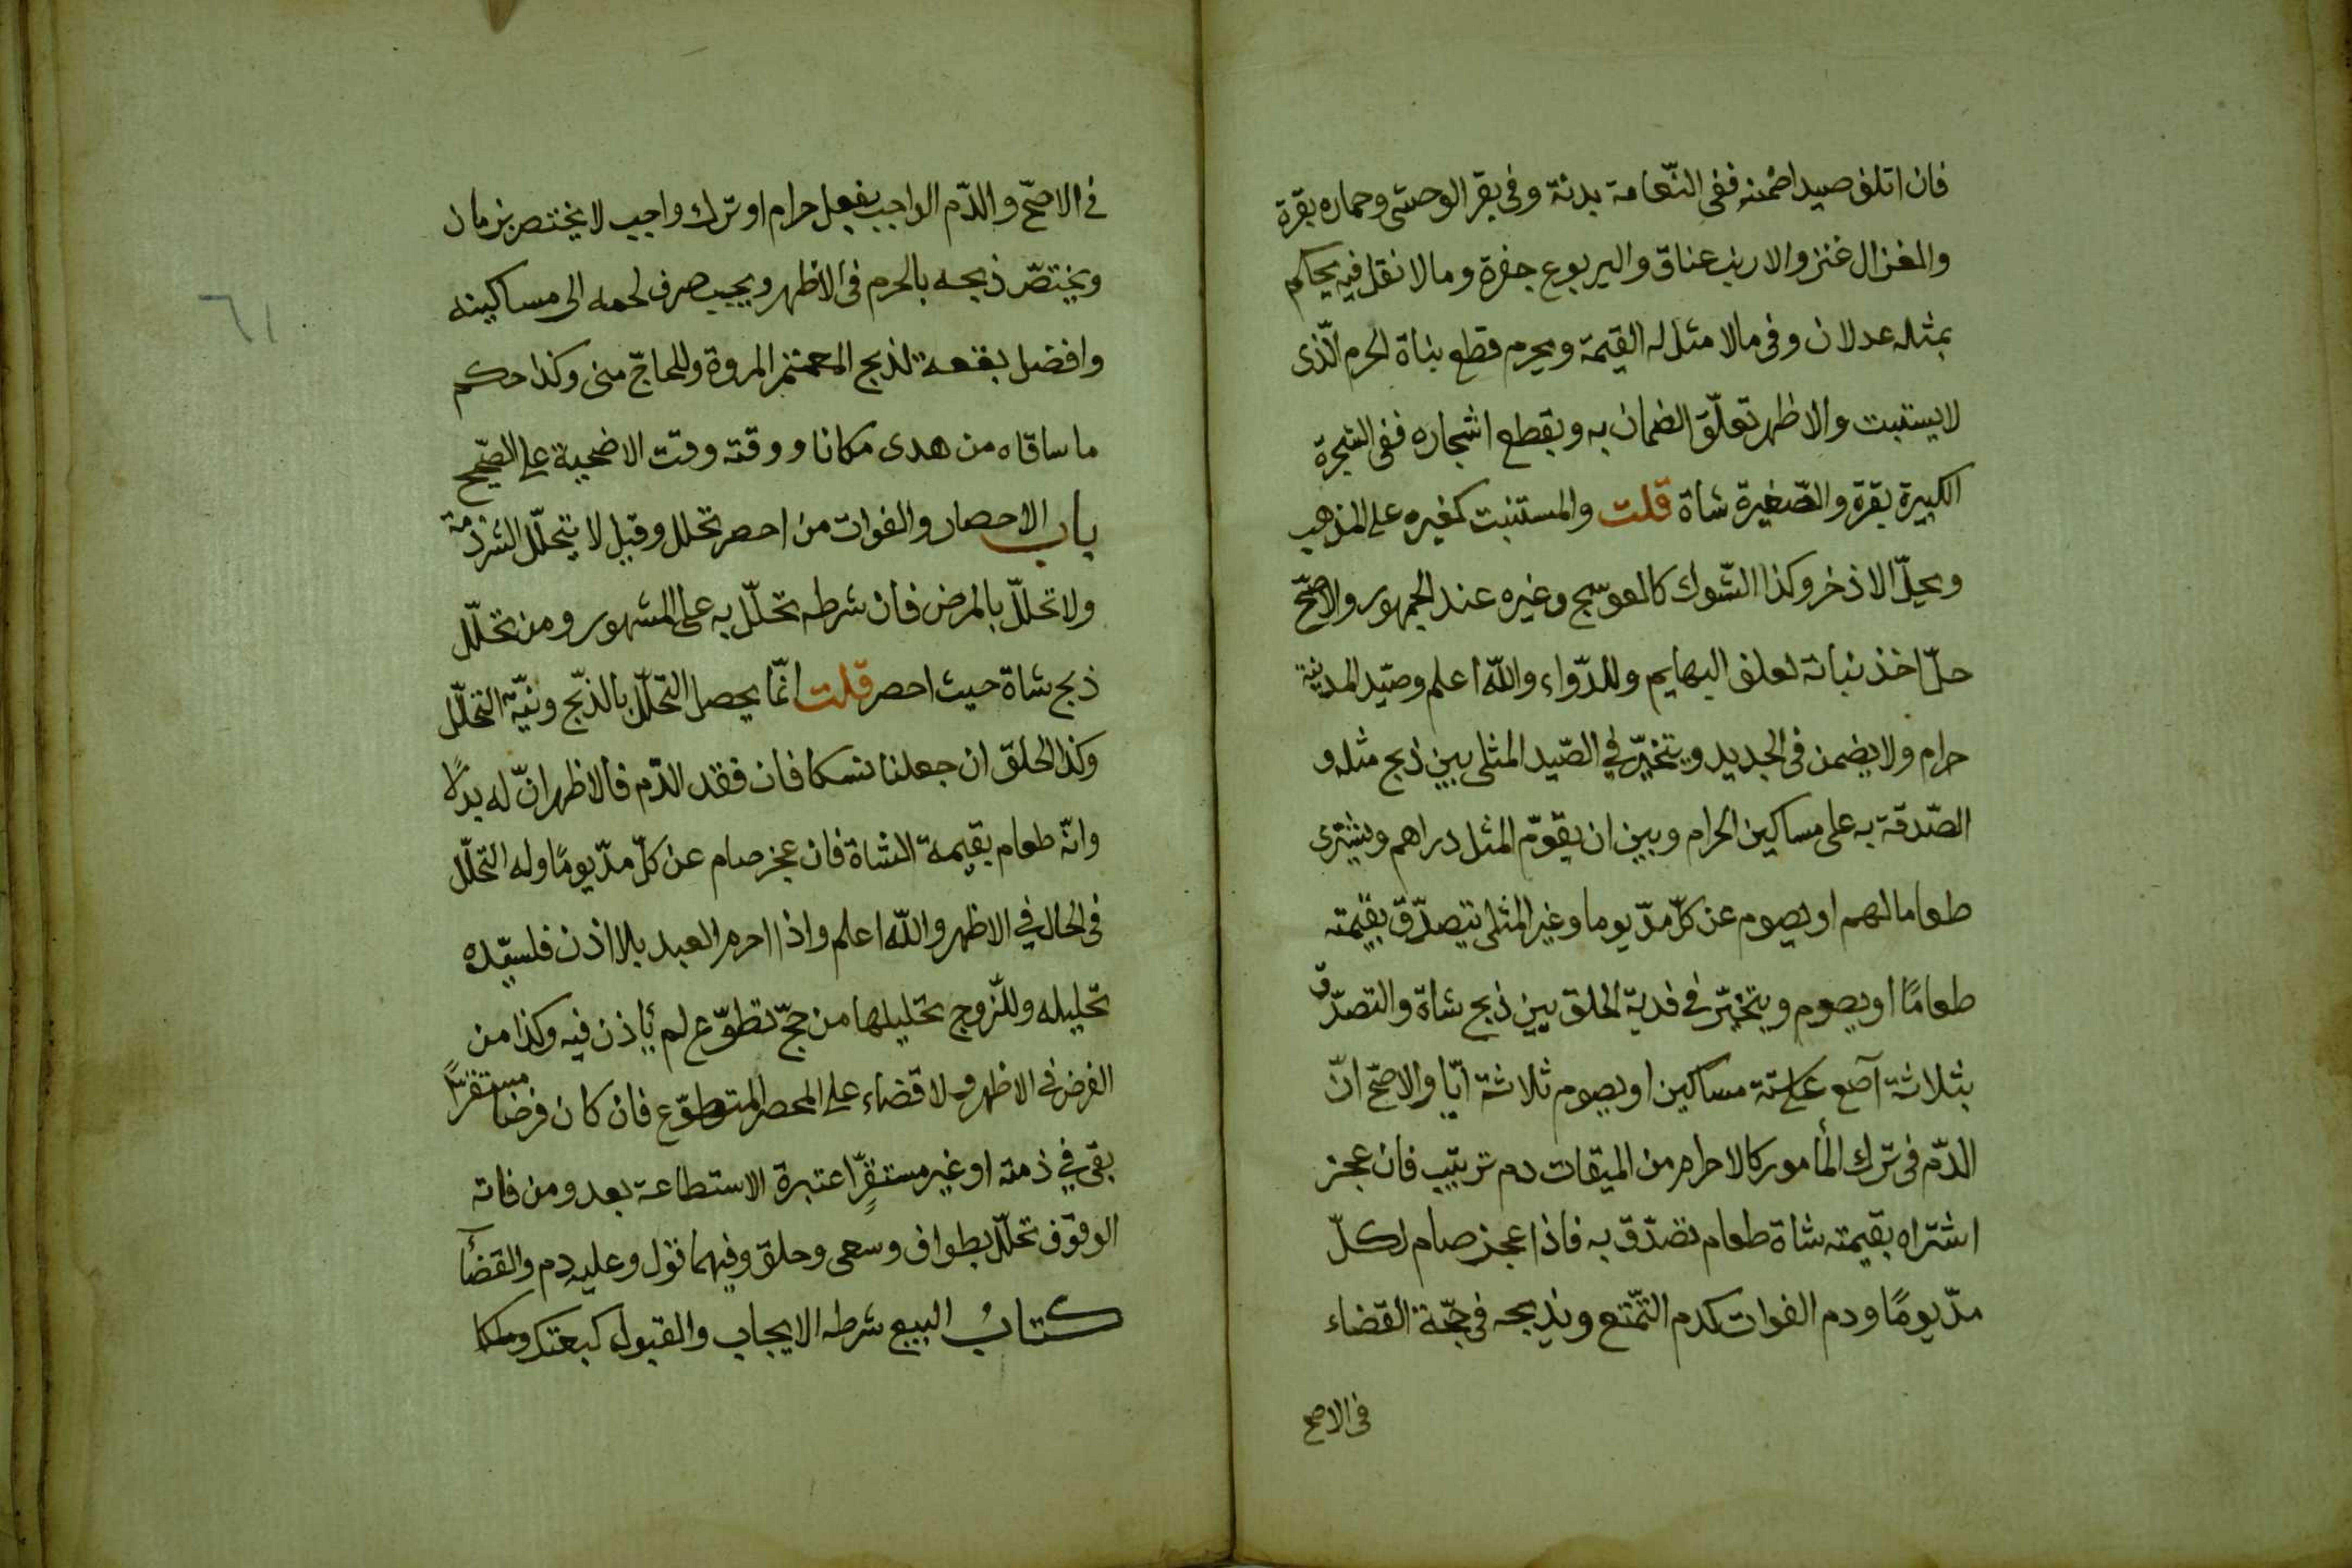 فان اتلف صيدا ضمنه ففى النّعامة بدنة وفى بقر الوحشى وحماره بقرة
والغزال عنز والارنب عناق واليربوع جفرة ومالا نقل فيه يحكم
بمثله عدلان وفى مالا مثل له القيمة ويحرم قطع بناة الحرم الّذى
لايستنبت والاظهر تعلّق الضمان به وبقطع اشجاره ففى الشجرة
الكبيرة بقرة والصّغيرة شاة قلت والمستنبت كغيره على المذهب
ويحلّ الاذخر وكذا الشّوك كالعوسج وغيره عند الجمهور والاصحّ
حلّ اخذ نباته لعلف البهايم وللدّواء والله اعلم وصيّد المدينة
حرام ولا يضمن فى الجديد ويتخيّر في الصّيد المثلى بين ذبح مثله و
الصّدقة به على مساكين الحرام وبين ان يقوّم المثل دراهم ويشترى
طعاما لهم او يصوم عن كلّ مدّ يوما وغير المثلى يتصدّق بقيمته
طعامًا او يصوم ويتخيّر في فدية الحلق بين ذبح شاة والتصدّق
بثلاثة آصع على ستة مساكين او يصوم ثلاثة ايّا والاصحّ انّ
الدّم فى ترك المأمور كالاحرام من الميقات دم ترتيب فان عجز
اشتراه بقيمته شاة طعام تصدّق به فاذا عجز صام لكلّ
مدّ يومًا ودم الفوات كدم التّمّتع ويذبحه فى حجّة القضاء
فى الاصح
في الاصحّ والدّم الواجب بفعل حرام او ترك واجب لا يختص بزمان
ويختصّ ذبحه بالحرم فى الاظهر ويجب صرف لحمه الى مساكينه
وافضل بقعة لذبح المعتمر المروة وللحاجّ منى وكذا حكم
ما ساقاه من هدى مكانا ووقته وقت الاضحية على الصّحيح
باب الاحصار والفوات من احصر تحلل وقيل لا يتحلّل الشرذمة
ولا تحلل بالمرض فان شرطه تحلّل به على المشهور ومن تحلّل
ذبح شاة حيث احصر قلت انّما يحصل التحلّل بالذبّح ونيّة التحلّل
وكذا الحلق ان جعلنا نسكا فان فقد الدّم فالاظهر انّ له بدلًا
وانّه طعام بقيمة الشاة فان عجز صام عن كلّ مدّ يومًا وله التحلّل
فى الحال في الاظهر والله اعلم واذا احرم العبد بلا اذن فلسيّده
تحليله وللزّوج تحليلها من حجّ تطوّع لم يأذن فيه وكذا من
الفرض في الاظهر ولا قضاء على المحصر المتطوّع فان كان فرضا مستقرًّا
بقى في ذمته او غير مستقرٍّ اعتبرة الاستطاعة بعد ومن فاته
الوقوف تحلّل بطواف وسعى وحلق وفيهما قول وعليه دم والقضآء
كتابُ البيع شرطه الايجاب والقبول كبعتك وملكا
٦١